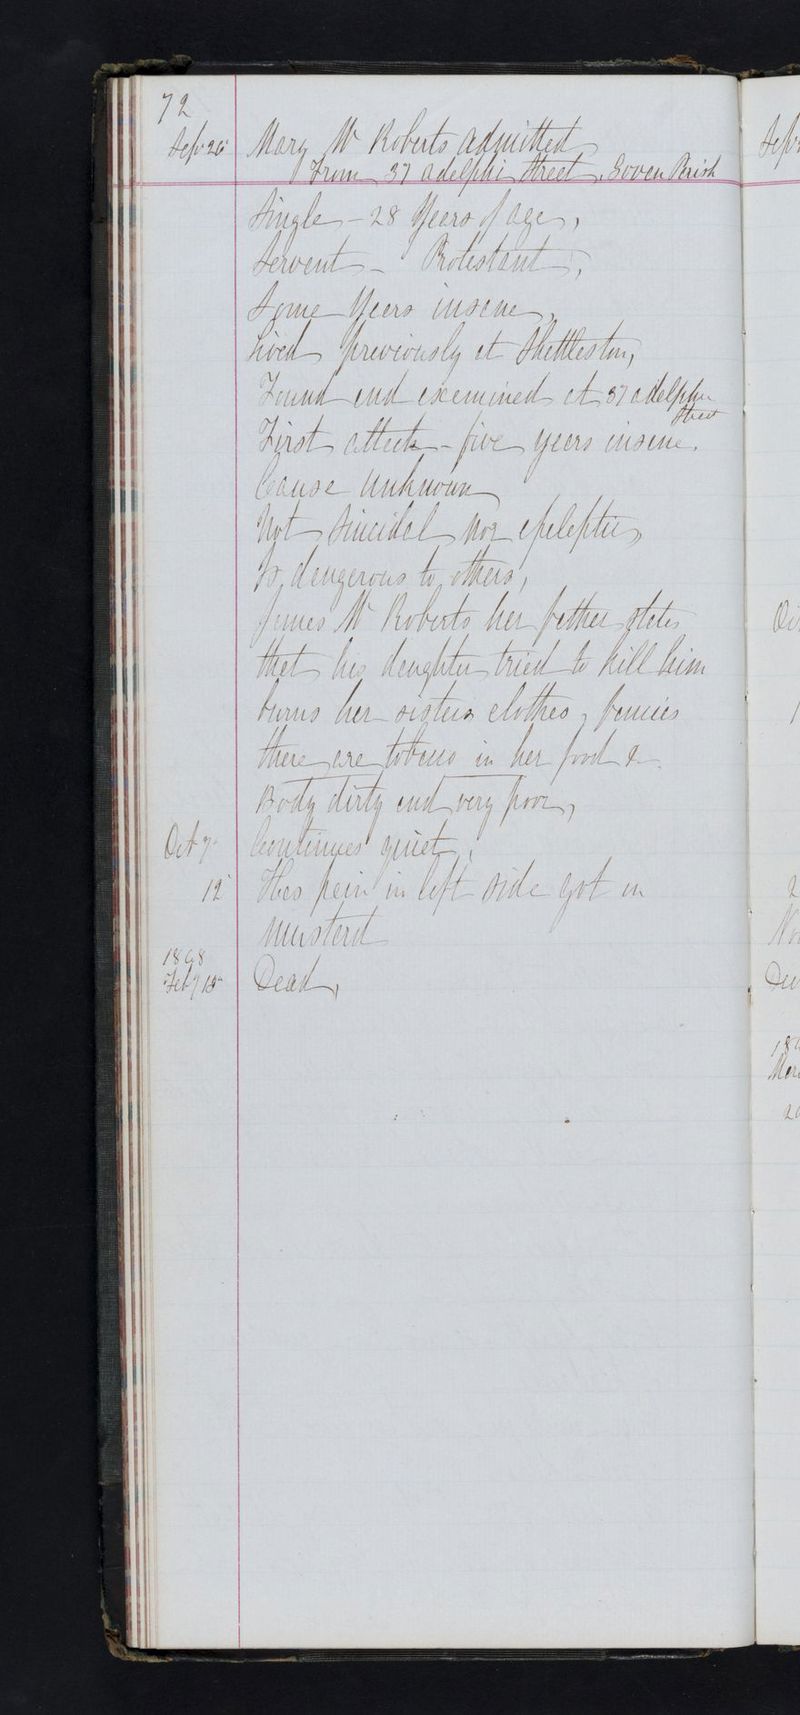 72
Sepr 26 Mary Mc Roberts Admitted
From 37 Adelphi Street, Govan Parish
Single - 28 Years of age,
Servant - Protestant,
Some Years insane,
Lived previously at Shettleston,
Found and examined at 37 adelphi
Street
First attack - five years insane.
Cause Unknown
Not Suicidal nor epileptic,
Is dangerous to others,
James Mc Roberts her father states
that his daughter tried to kill him
burns her sisters clothes, fancies
there are in her food &c.
Body dirty and very poor,
Oct 7 Continues quiet,
12 Has pain in left side got on
Mustard
1868
Feby 15 Dead,
Sepr
Dec